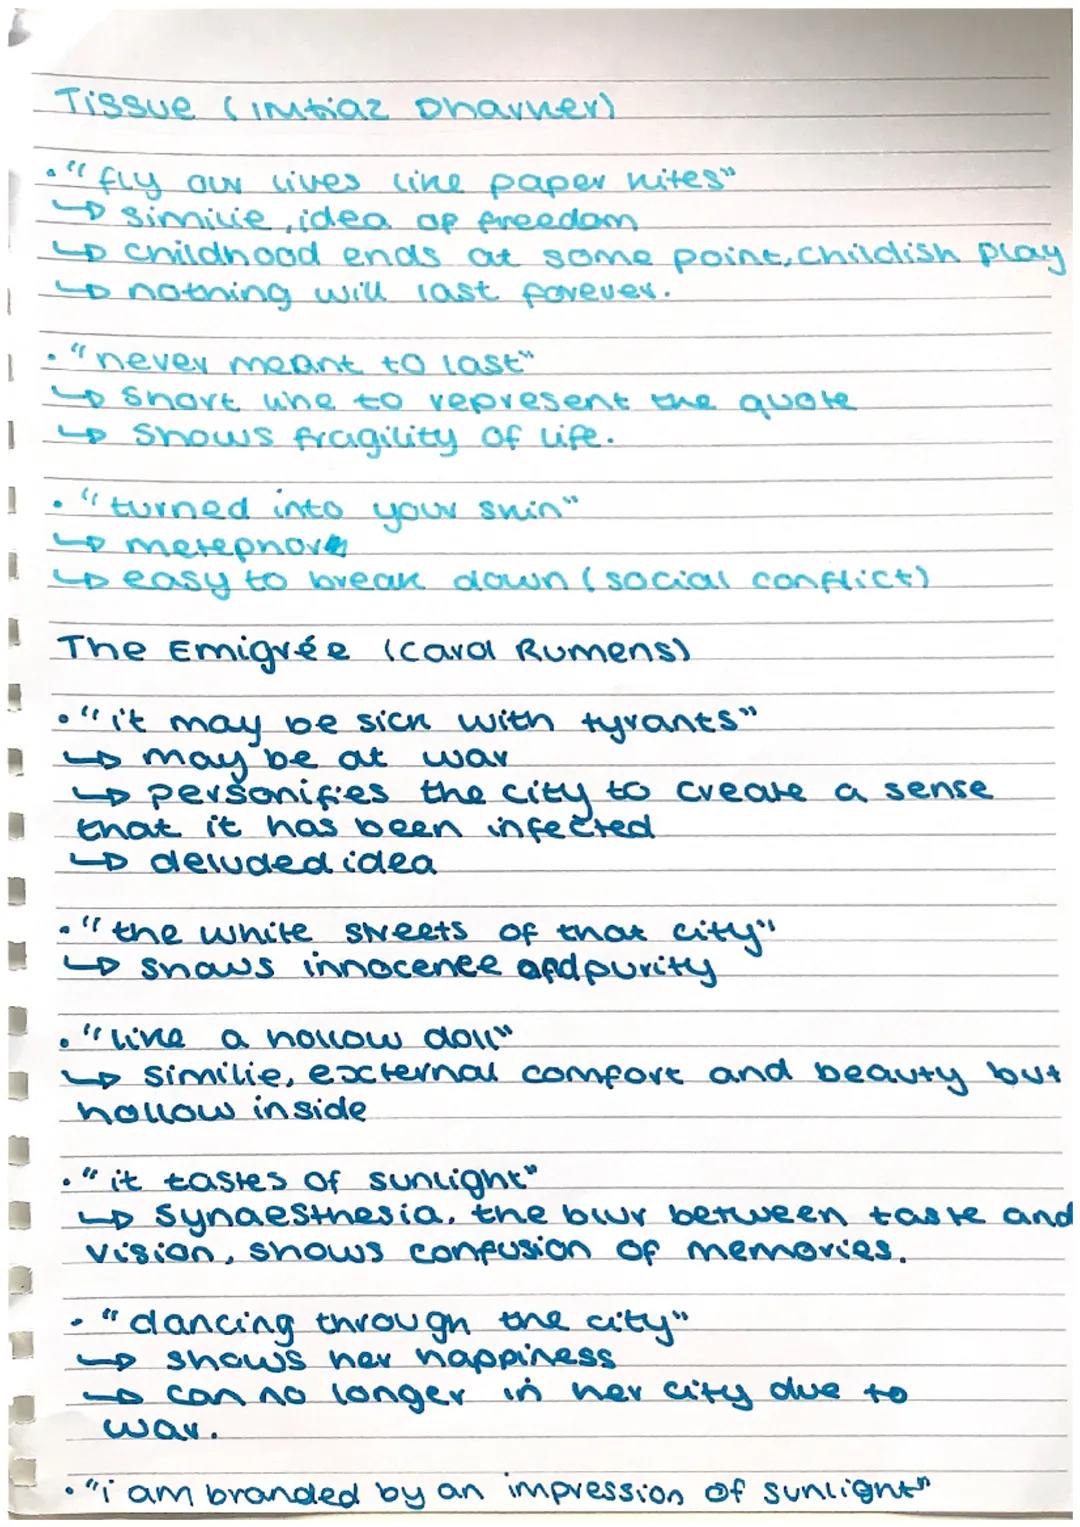 Tissue (Imtiaz Dharker)
• "fly our lives like paper kites"
↳ Similie, idea of freedom
↳ childhood ends at some point, childish play
↳ nothing will last forever.
• "never meant to last"
↳ Short line to represent the quote
↳ Shows fragility of life.
• "turned into your skin"
↳ metephor
↳ easy to break down (social conflict)
The Emigrée (Carol Rumens)
• "it may be sick with tyrants"
↳ may be at war
↳ personifies the city to create a sense
that it has been infected
↳ deluded idea
• "the white streets of that city"
↳ shows innocence and purity
• "like a hollow doll"
↳ similie, external comfort and beauty but
hollow inside
• "it tastes of sunlight"
↳ Synaesthesia, the blur between taste and
vision, shows confusion of memories.
• "dancing through the city"
↳ shows her happiness
↳ can no longer in her city due to
war.
• "i am branded by an impression of sunlight"